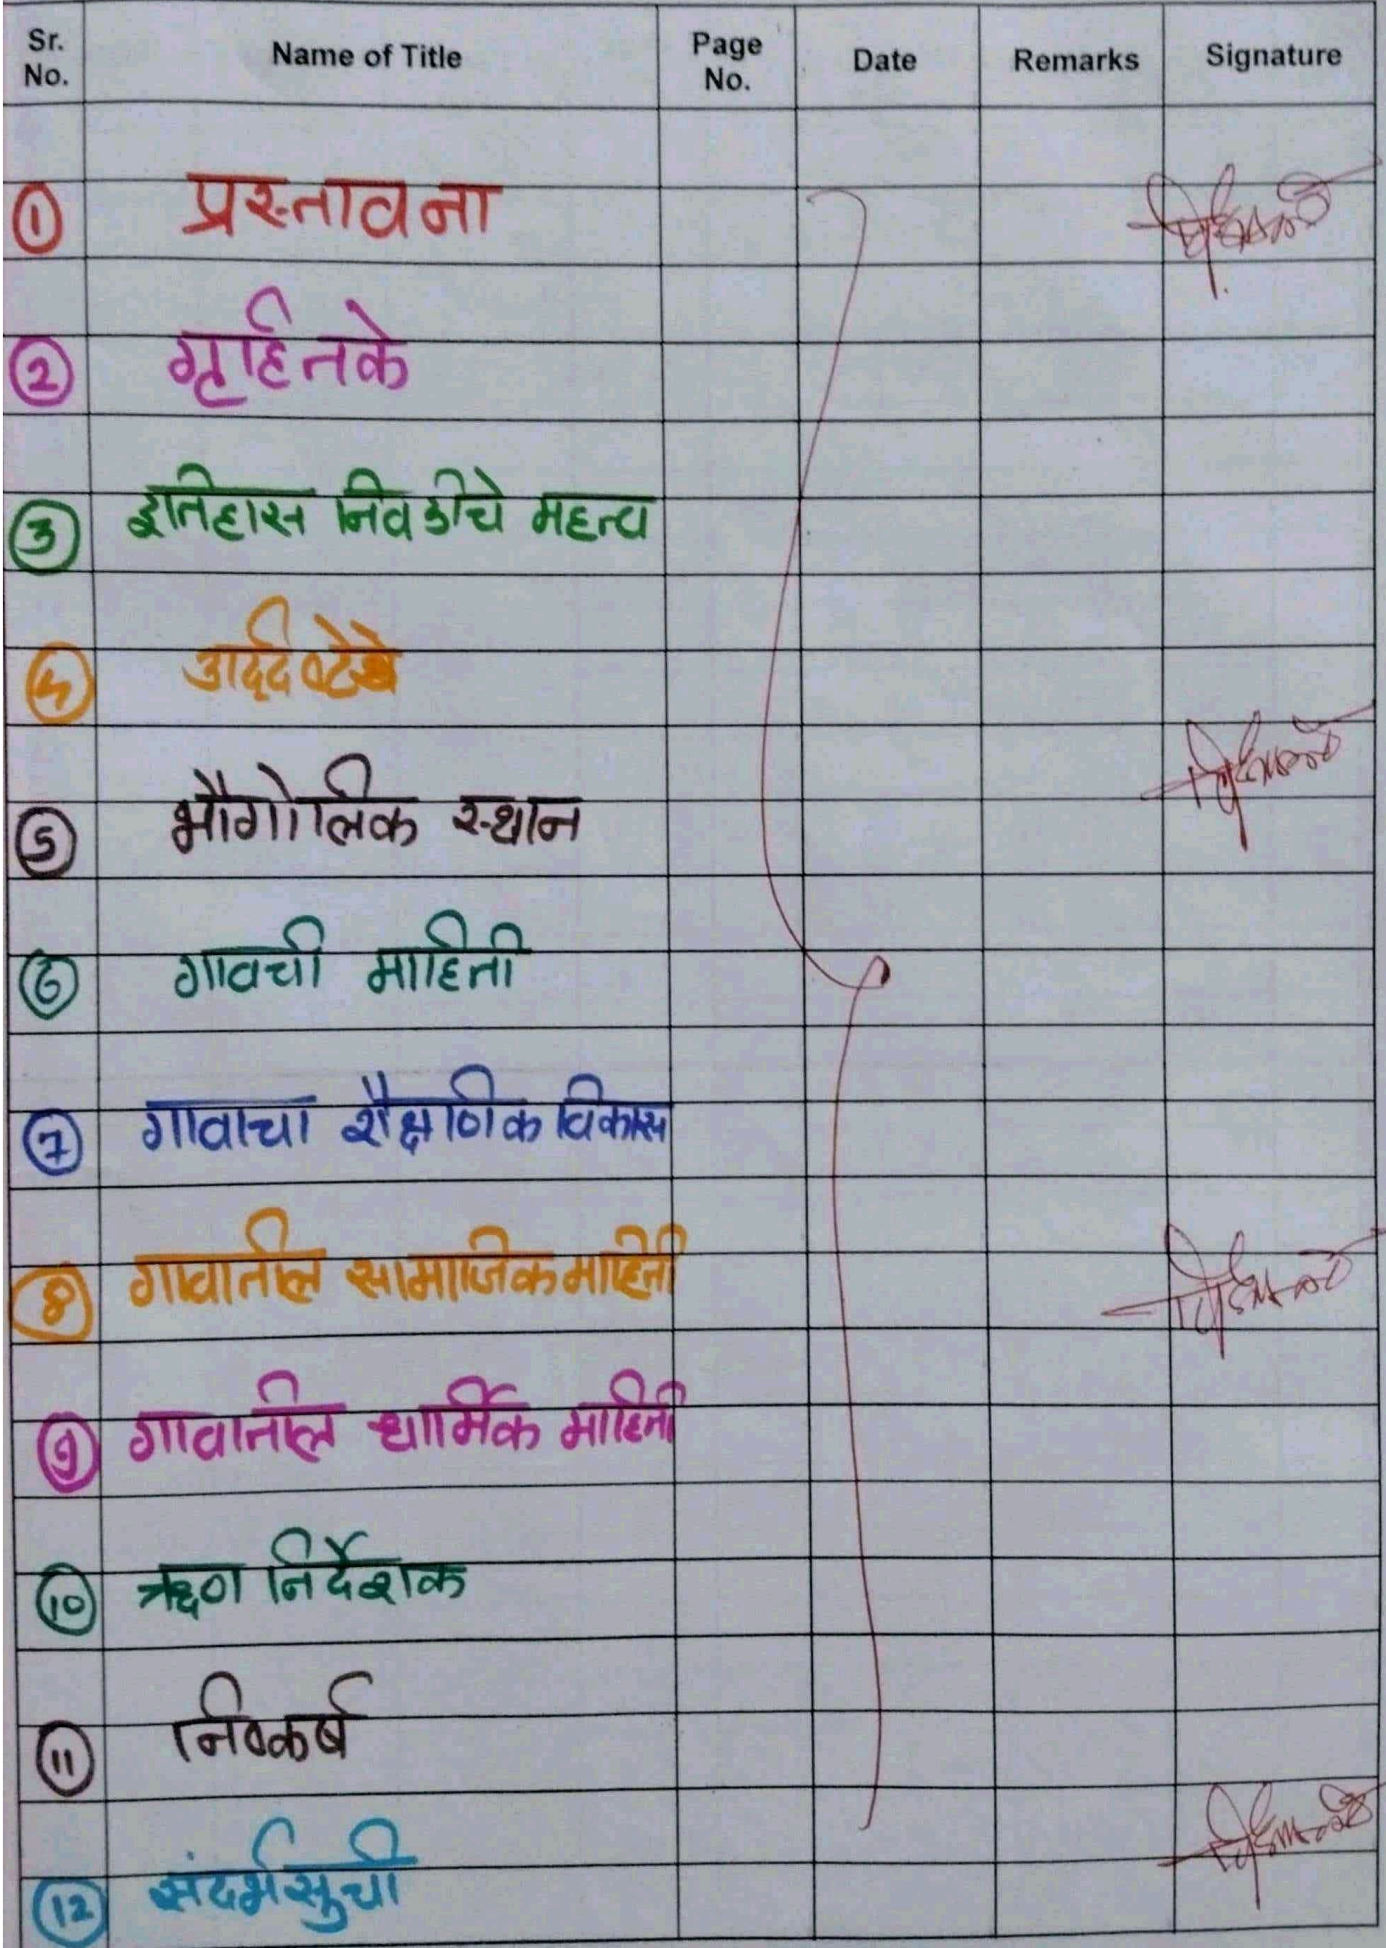 Sr. No. Name of Title Page No. Date Remarks Signature
1 प्रस्तावना
2 गृहितके
3 इतिहास निवडीचे महत्व
4
5 भौगोलिक स्थान
6 गावची माहिती
7 गावाचा शैक्षणिक विकास
8 गावातील सामाजिक माहिती
9 गावातील धार्मिक माहिती
10 ऋण निर्देशक
11 निष्कर्ष
12 संदर्भसुची